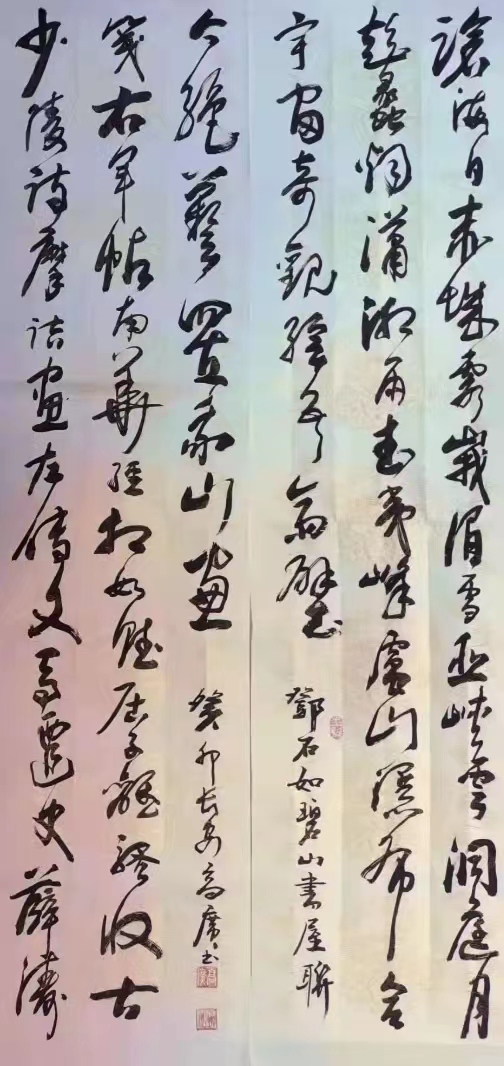 滄海日赤城霞峨眉雪巫峽雲洞庭月
彭蠡烟瀟湘雨武夷峰廬山瀑布合
宇宙奇觀繪吾齋壁
鄧石如碧山書屋聯
少陵詩摩詰畫左傳文馬遷史薛濤
箋右軍帖南華經相如賦屈子離騷收古
今絕藝置我山窗
癸卯长安高书